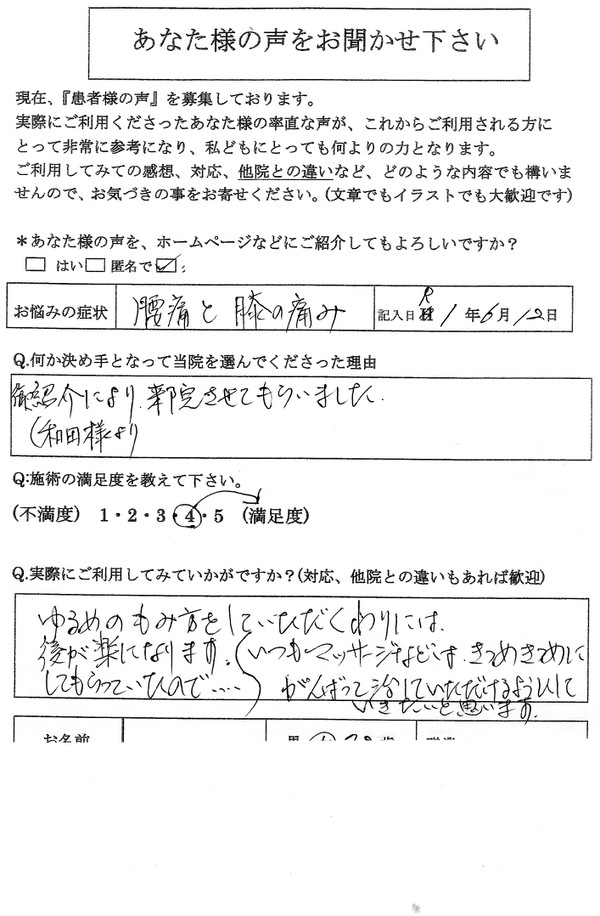 あなた様の声をお聞かせ下さい
現在、『患者様の声』を募集しております。
実際にご利用くださったあなた様の率直な声が、これからご利用される方に
とって非常に参考になり、私どもにとっても何よりの力となります。
ご利用してみての感想、対応、他院との違いなど、どのような内容でも構いま
せんので、お気づきの事をお寄せください。(文章でもイラストでも大歓迎です)
＊あなた様の声を、ホームページなどにご紹介してもよろしいですか？
はい 匿名で
お悩みの症状 腰痛と膝の痛み 記入日 R 1年6月12日
Q.何か決め手となって当院を選んでくださった理由
御紹介により、来院させてもらいました。
(和田様より
Q:施術の満足度を教えて下さい。
(不満度) 1・2・3・4・5 (満足度)
Q.実際にご利用してみていかがですか？(対応、他院との違いもあれば歓迎)
ゆるめのもみ方をしていただくわりには、
後が楽になります。
いつもマッサージなどは、きつめきつめに
してもらっていたので‥‥
がんばって治していただけるようにして
いきたいと思います。
お名前